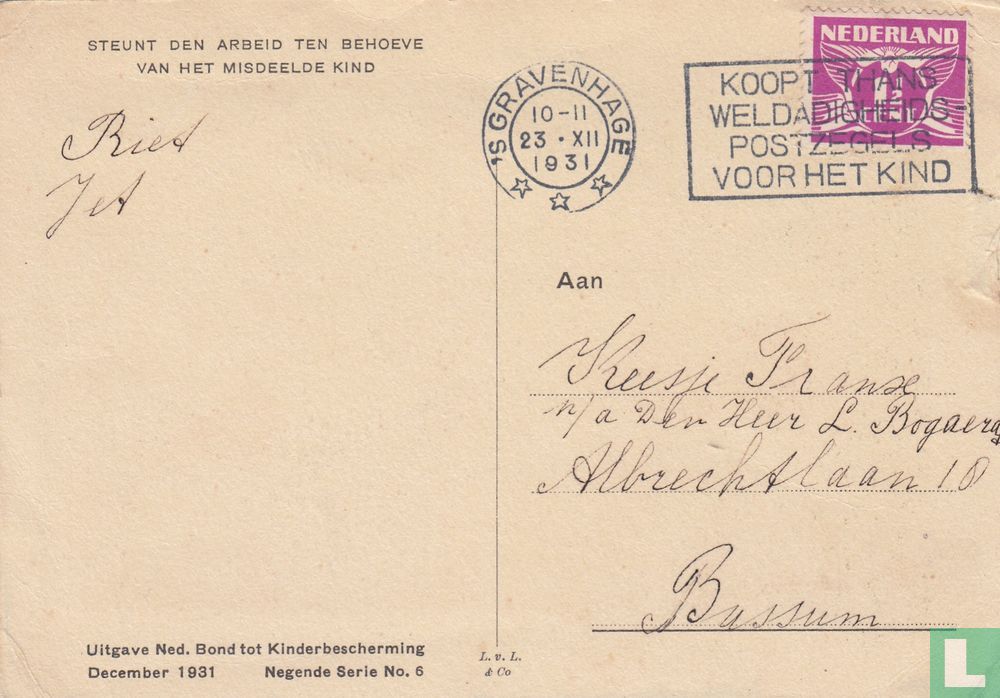 STEUNT DEN ARBEID TEN BEHOEVE
VAN HET MISDEELDE KIND
Riet
Jet
Uitgave Ned. Bond tot Kinderbescherming
December 1931 Negende Serie No. 6
L. v. L.
& Co
'S GRAVENHAGE
10-11
23 · XII
1931
NEDERLAND
1½
CENT
KOOPT THANS
WELDADIGHEIDS-
POSTZEGELS
VOOR HET KIND
Aan
Keesje Franse
p/a Den Heer L. Bogaerds
Albrechtlaan 18
Bussum
L